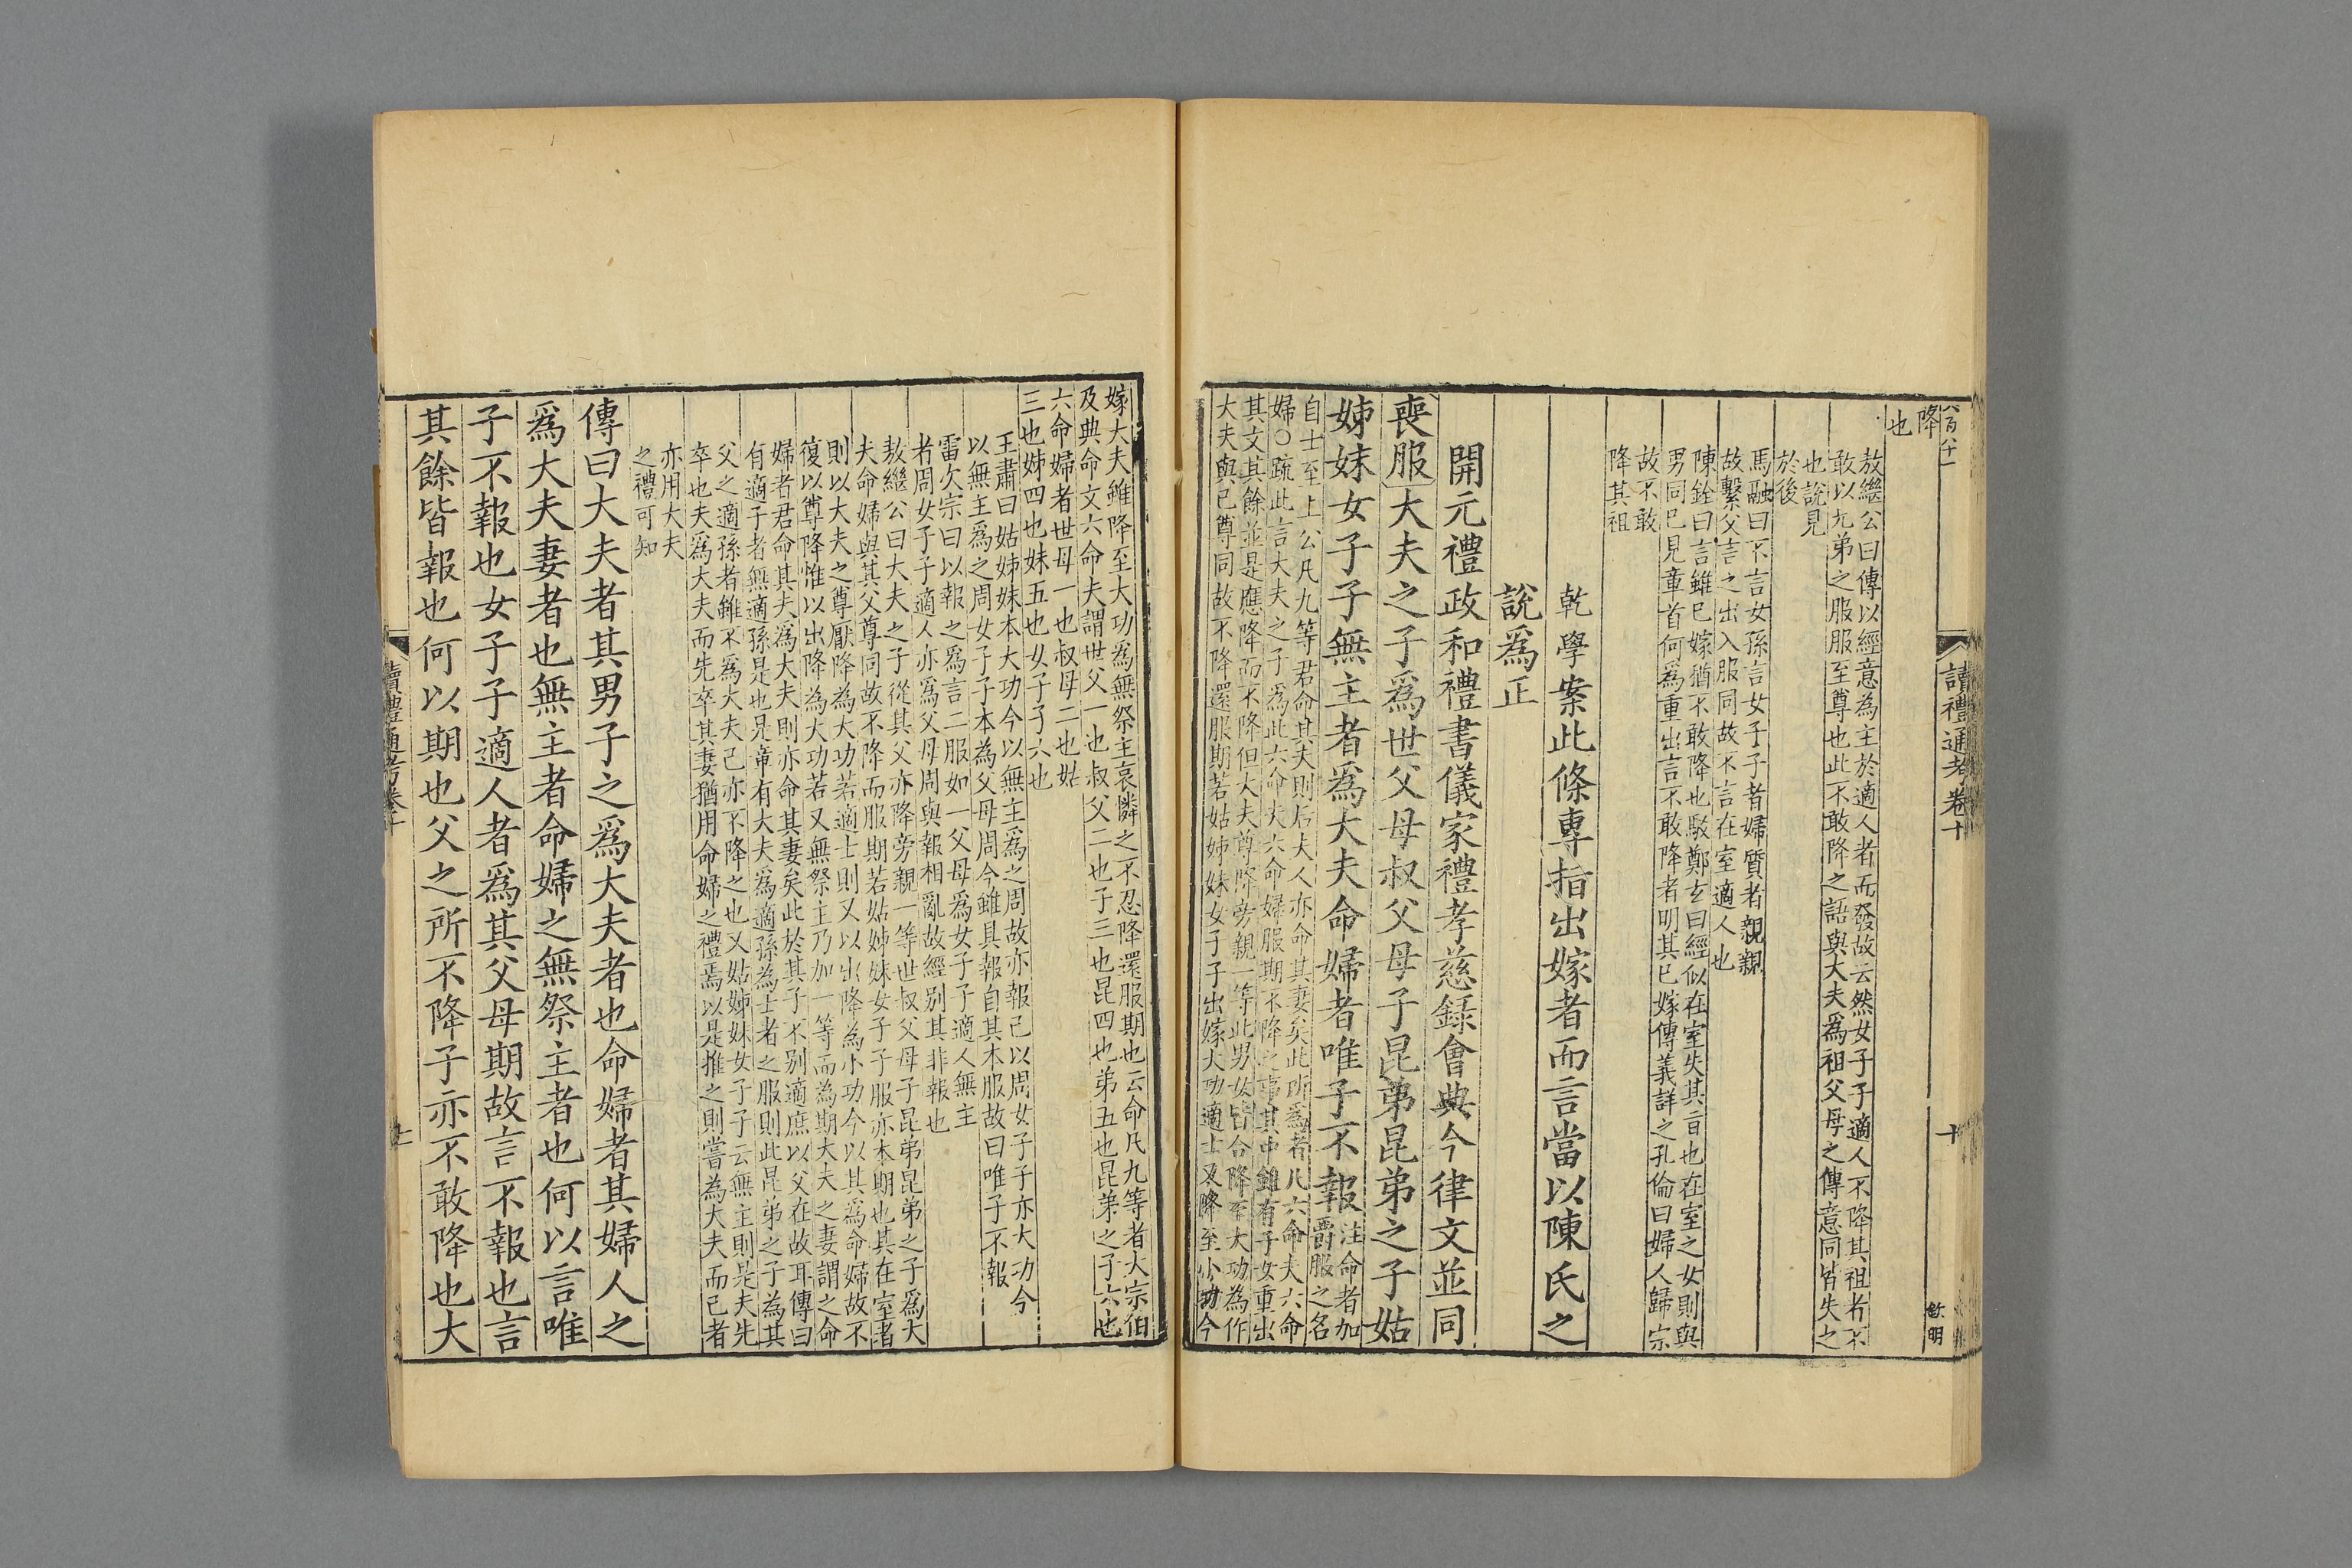 八百八十一
讀禮通考卷十
十
欽明
降
也
敖繼公曰傳以經意為主於適人者而發故云然女子子適人不降其祖者不
敢以九弟之服服至尊也此不敢降之語與大夫爲祖父母之傳意同皆失之
也說見
於後
馬融曰不言女孫言女子子者婦質者親親
故繫父言之出入服同故不言在室適人也
陳銓曰言雖已嫁猶不敢降也駁鄭玄曰經似在室失其旨也在室之女則與
男同已見章首何爲重出言不敢降者明其已嫁傳義詳之孔倫曰婦人歸宗
故不敢
降其祖
乾學案此條專指出嫁者而言當以陳氏之
說爲正
開元禮政和禮書儀家禮孝慈錄會典今律文並同
喪服大夫之子爲世父母叔父母子昆弟昆弟之子姑
姊妹女子子無主者爲大夫命婦者唯子不報
注命者加
爵服之名
自士至上公凡九等君命其夫則后夫人亦命其妻矣此所爲者凡六命夫六命
婦○疏此言大夫之子爲此六命夫六命婦服期不降之事其中雖有子女重出
其文其餘並是應降而不降但大夫尊降旁親一等此男女皆合降至大功為作
大夫與己尊同故不降還服期若姑姊妹女子子出嫁大功適士又降至小功今
嫁大夫雖降至大功為無祭主哀憐之不忍降還服期也云命凡九等者大宗伯
及典命文六命夫謂世父一也叔父二也子三也昆四也弟五也昆弟之子六也
六命婦者世母一也叔母二也姑
三也姊四也妹五也女子子六也
王肅曰姑姊妹本大功今以無主爲之周故亦報己以周女子子亦大功今
以無主爲之周女子子本為父母周今雖具報自其本服故曰唯子不報
雷次宗曰以報之爲言二服如一父母爲女子子適人無主
者周女子子適人亦爲父母周與報相亂故經别其非報也
敖繼公曰大夫之子從其父亦降旁親一等世叔父母子昆弟昆弟之子爲大
夫命婦與其父尊同故不降而服期若姑姊妹女子子服亦本期也其在室者
則以大夫之尊厭降為大功若適士則又以出降為小功今以其爲命婦故不
復以尊降惟以出降為大功若又無祭主乃加一等而為期大夫之妻謂之命
婦者君命其夫爲大夫則亦命其妻矣此於其子不别適庶以父在故耳傳曰
有適子者無適孫是也見章有大夫爲適孫為士者之服則此昆弟之子為其
父之適孫者雖不爲大夫己亦不降之也又姑姊妹女子子云無主則是夫先
卒也夫爲大夫而先卒其妻猶用命婦之禮焉以是推之則嘗為大夫而已者
亦用大夫
之禮可知
傳曰大夫者其男子之爲大夫者也命婦者其婦人之
爲大夫妻者也無主者命婦之無祭主者也何以言唯
子不報也女子子適人者爲其父母期故言不報也言
其餘皆報也何以期也父之所不降子亦不敢降也大
讀禮通考卷十